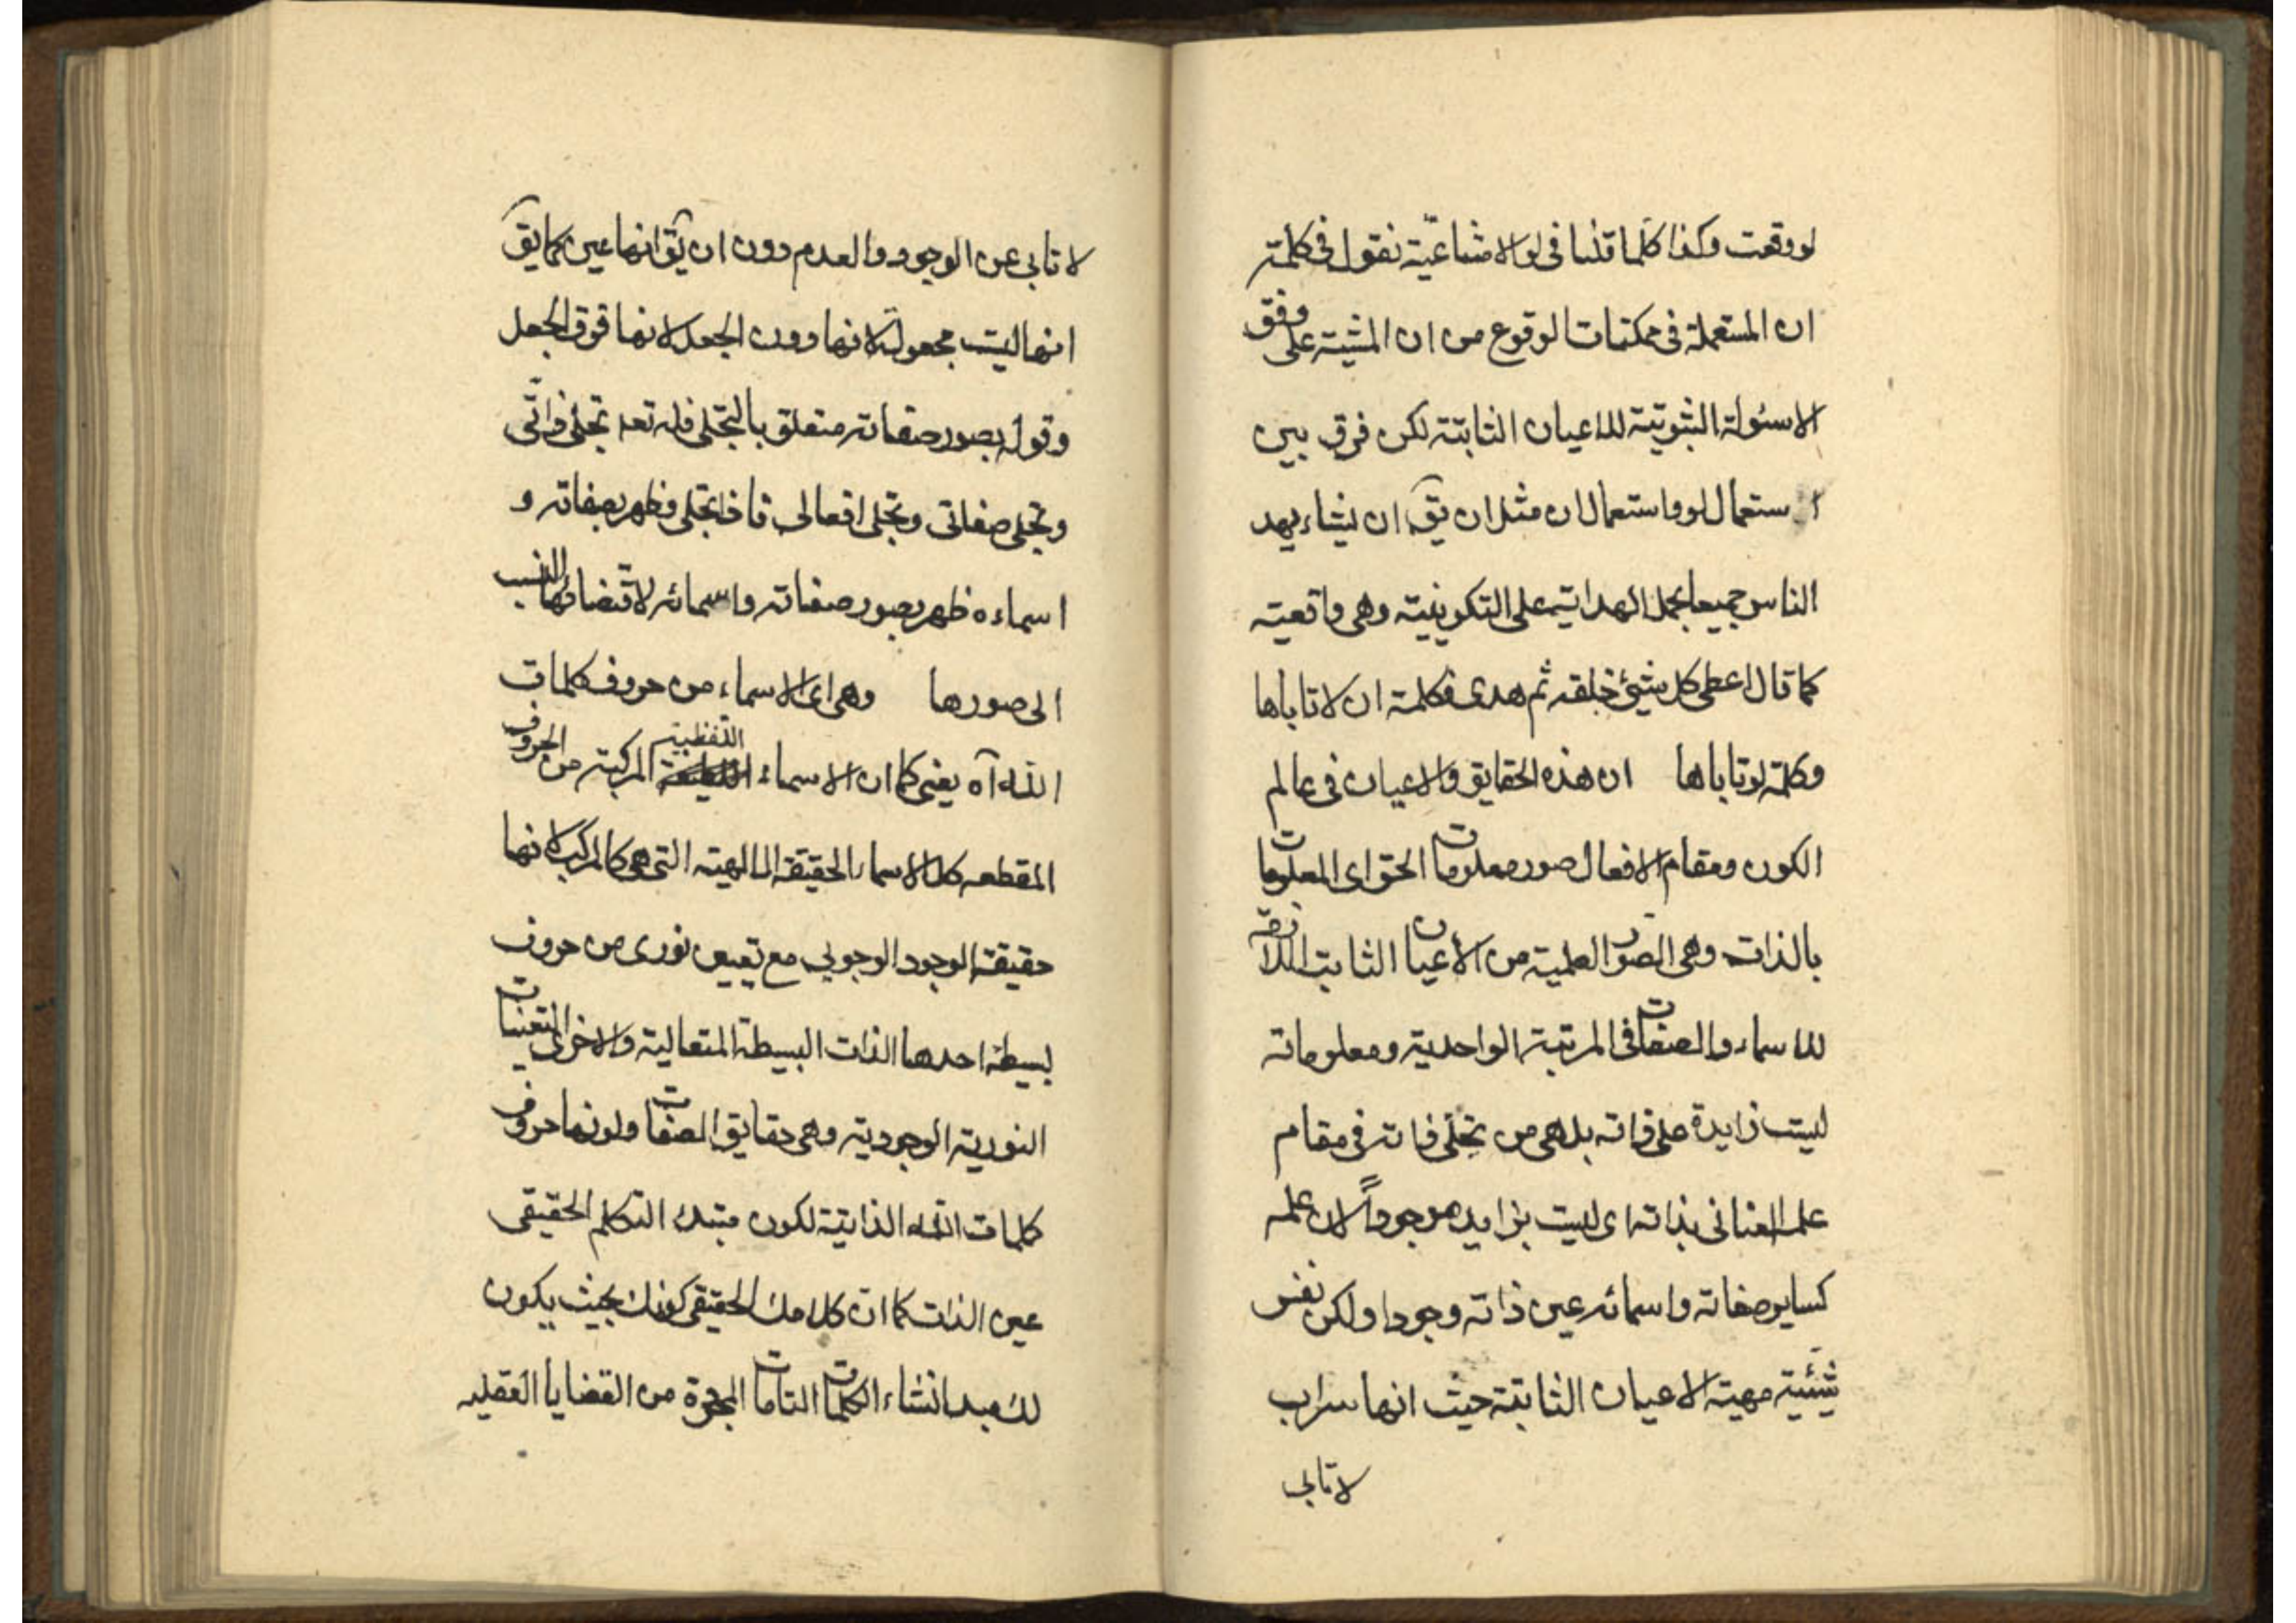 لو وقعت وكذا كلما قلنا فى لو الامتناعيّة نقول فى كلمة
ان المستعملة فى ممكنات الوقوع من ان المشية على وفق
الاسئولة الثبوتية للاعيان الثابتة لكن فرق بين
استعمال لو واستعمال ان مثل ان يق ان يشاء يهد
الناس جميعا بحمل الهداية على التكوينية وهى واقعية
كما قال اعطى كل شيئ خلقه ثم هدى فكلمة ان لا تاباها
وكلمة لو تاباها ان هذه الحقايق والاعيان فى عالم
الكون ومقام الافعال صور معلومات الحق اى المعلومات
بالذات وهى الصور العلمية من الأعيان الثابت اللازمة
للاسماء والصفات فى المرتبة الواحدية ومعلوماته
ليست زايدة على ذاته بل هى من تجلى ذاته فى مقام
علمه العنائى بذاته اى ليست بزايد موجوداً لان علمه
كساير صفاته واسمائه عين ذاته وجودا ولكن نفس
شيئية مهية الاعيان الثابتة حيث انها سراب
لا تابى
لا تابى عن الوجود والعدم دون ان يق انها عين كما يق
انها ليست مجعولة لانها دون الجعل لا نها فوق الجعل
وقوله بصور صفاته متعلق بالتجلى فله تعه تجلى ذاتّى
وتجلى صفاتى وتجلى افعالى فاذا تجلى وظهر بصفاته و
اسماءه ظهر بصور صفاته واسمائه لاقتضائها النسب
الى صورها وهى اى الاسماء من حروف كلمات
الله آه يعنى كما ان الاسماء اللفظية المركبة من الحروف
المقطعه كك الاسماء الحقيقة الالهية التى هى كالمركب لانها
حقيقة الوجود الوجوبى مع تعين نورى من حروف
بسيطة احدها الذات البسيطة المتعالية والاخرى التعينات
النورية الوجودية وهى حقايق الصفات ولونها حروف
كلمات الله الذاتية لكون مبتدء التكلم الحقيقى
عين الذات كما ان كلامك الحقيقى كونك بحيث يكون
لك مبد انشاء الكلمات التامات المجردة من القضايا العقليه